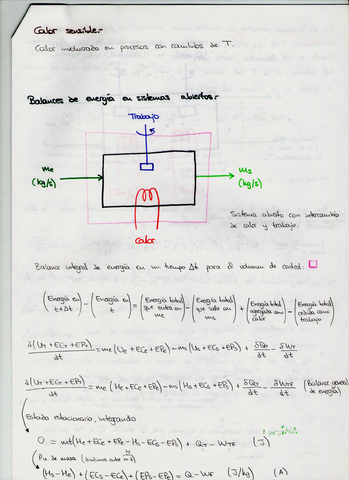 Calor sensible.-
Calor involucrado en procesos con cambios de T.
Balances de energía en sistemas abiertos.-
Trabajo
me
(kg/s)
ms
(kg/s)
Calor
Sistema abierto con intercambio
de calor y trabajo.
Balance integral de energía en un tiempo Δt para el volumen de control:
(Energía en t+Δt) - (Energía en t) = (Energía total que entra en me) - (Energía total que sale en ms) + (Energía total agregada como calor) - (Energía total cedida como trabajo)
d(UT + ECT + EPT)/dt = me (Ue + ECe + EPe) - ms (Us + ECs + EPs) + δQT/dt - δWT/dt
d(UT + ECT + EPT)/dt = me (He + ECe + EPe) - ms (Hs + ECs + EPs) + δQT/dt - δWTF/dt (Balance general de energía)
Estado estacionario, integrando
0 = mt (He + ECe + EPe - Hs - ECs - EPs) + QT - WTF (J)
P.u. de masa (dividimos entre mt)
(Hs - He) + (ECs - ECe) + (EPs - EPe) = Q - WF (J/kg) (A)